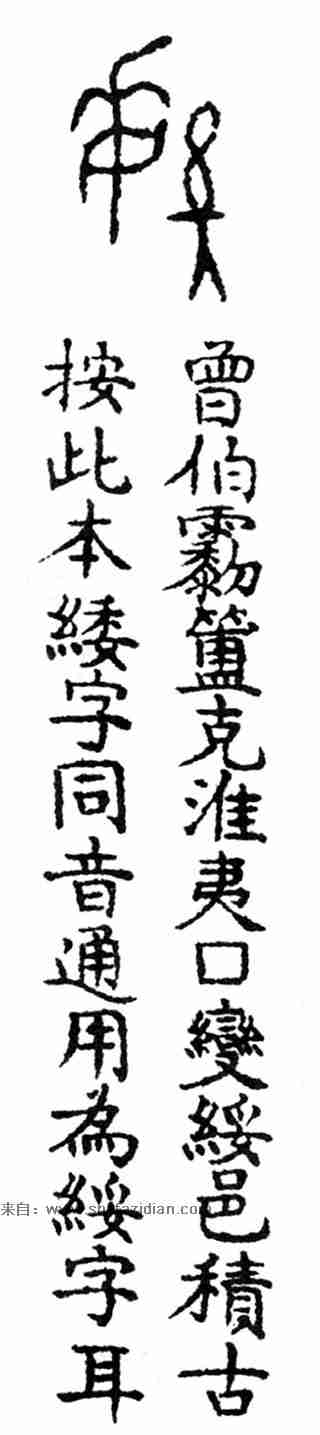 曾伯霥簠克淮夷口變綏邑積古
按此本緌字同音通用為綏字耳
来自：www.shufazidian.com